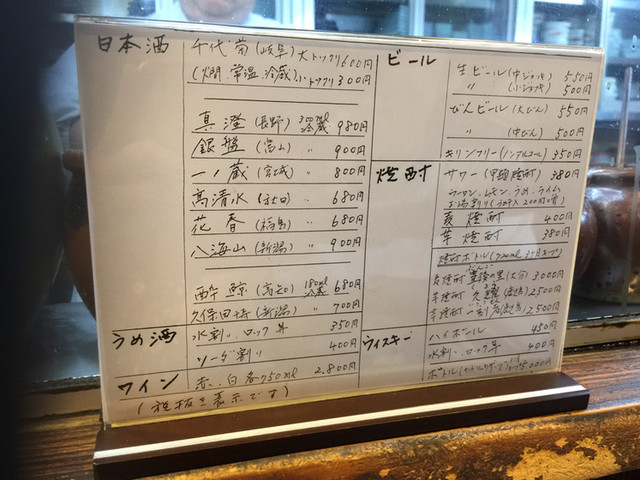 日本酒
千代菊(岐阜)大トックリ600円
(燗、常温、冷蔵)小トックリ300円
真澄(長野)300ml冷蔵 980円
銀盤(富山) 〃 900円
一ノ蔵(宮城) 〃 800円
高清水 〃 680円
花春(福島) 〃 680円
八海山(新潟) 〃 900円
酔鯨(高知)180ml冷蔵 680円
久保田千寿(新潟) 〃 700円
うめ酒
水割、ロック 350円
ソーダ割 400円
ワイン
赤、白各750ml 2.800円
(税抜き表示です)
ビール
生ビール(中ジョッキ) 550円
〃 (小ジョッキ) 500円
びんビール(大びん) 550円
〃 (中びん) 500円
キリンフリー(ノンアルコール) 350円
焼酎
サワー(甲類焼酎) 380円
ウーロン、レモン、うめ、ライム
お湯割り(うめ入
麦焼酎 400円
芋焼酎 380円
焼酎ボトル(720ml 3ヶ月キープ)
麦焼酎 の里(大分) 3000円
芋焼酎 2500円
芋焼酎 2,500円
ウィスキー
ハイボール 450円
水割、ロック 400円
ボトル 5000円